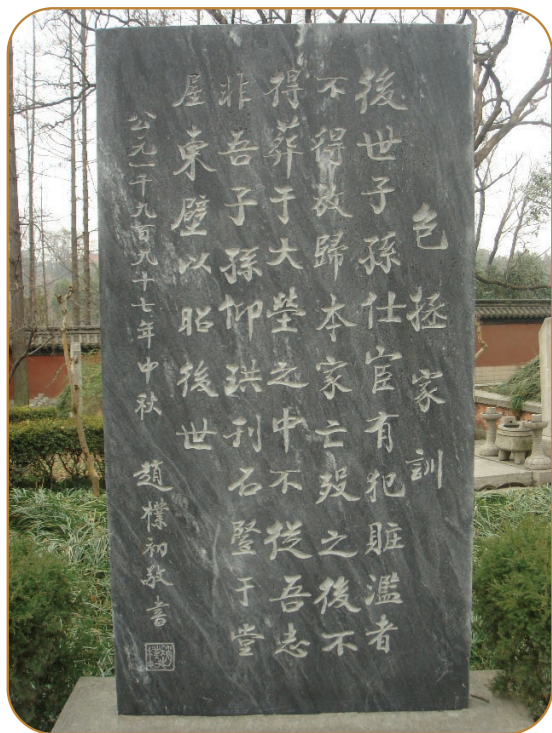 包拯家訓
後世子孫仕宦有犯贓濫者
不得放歸本家亡殁之後不
得葬于大塋之中不從吾志
非吾子孫仰珙刋石竪于堂
屋東壁以昭後世
公元一千九百九十七年中秋 趙樸初敬書